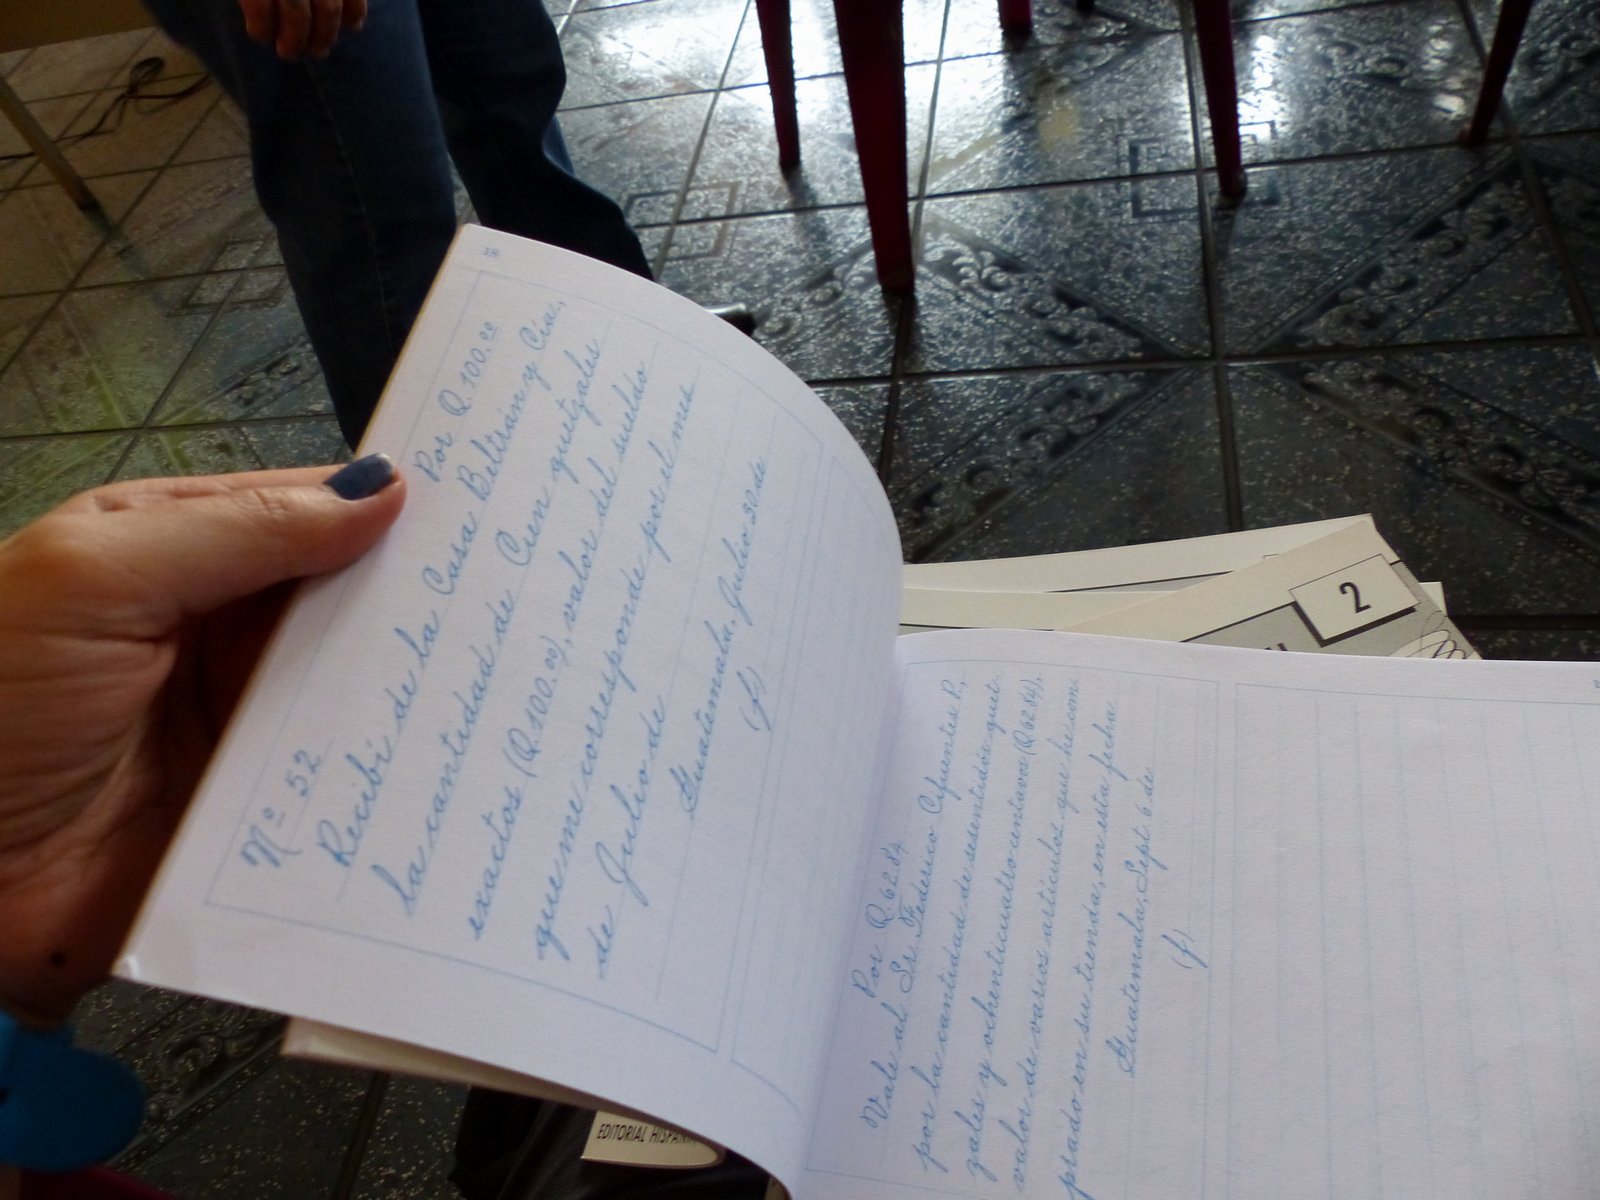 18
Nº 52
Por Q.100.00
Recibí de la Casa Beltrán y Cía.
la cantidad de Cien quetzales
exactos (Q.100.00), valor del sueldo
que me corresponde por el mes
de Julio de
Guatemala, Julio 30 de
(f)
Por Q.62.84
Vale al Sr. Federico Cifuentes P.,
por la cantidad de sesentidós quet-
zales y ochenticuatro centavos (Q.62.84),
valor de varios artículos que he com-
prado en su tienda, en esta fecha.
Guatemala, Sept. 6 de
(f)
2
EDITORIAL HISPANIA